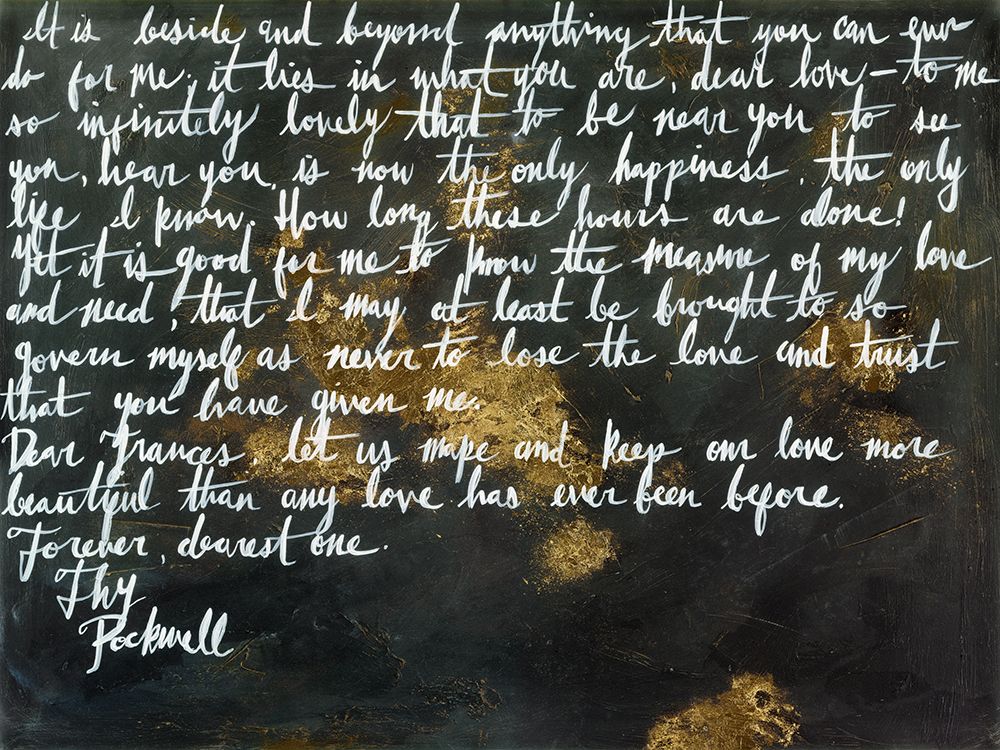 It is beside and beyond anything that you can ever
do for me; it lies in what you are, dear love – to me
so infinitely lovely that to be near you to see
you, hear you, is now the only happiness, the only
life I know. How long these hours are alone!
Yet it is good for me to know the measure of my love
and need, that I may at least be brought to so
govern myself as never to lose the love and trust
that you have given me.
Dear Frances, let us make and keep our love more
beautiful than any love has ever been before.
Forever, dearest one.
Thy
Rockwell